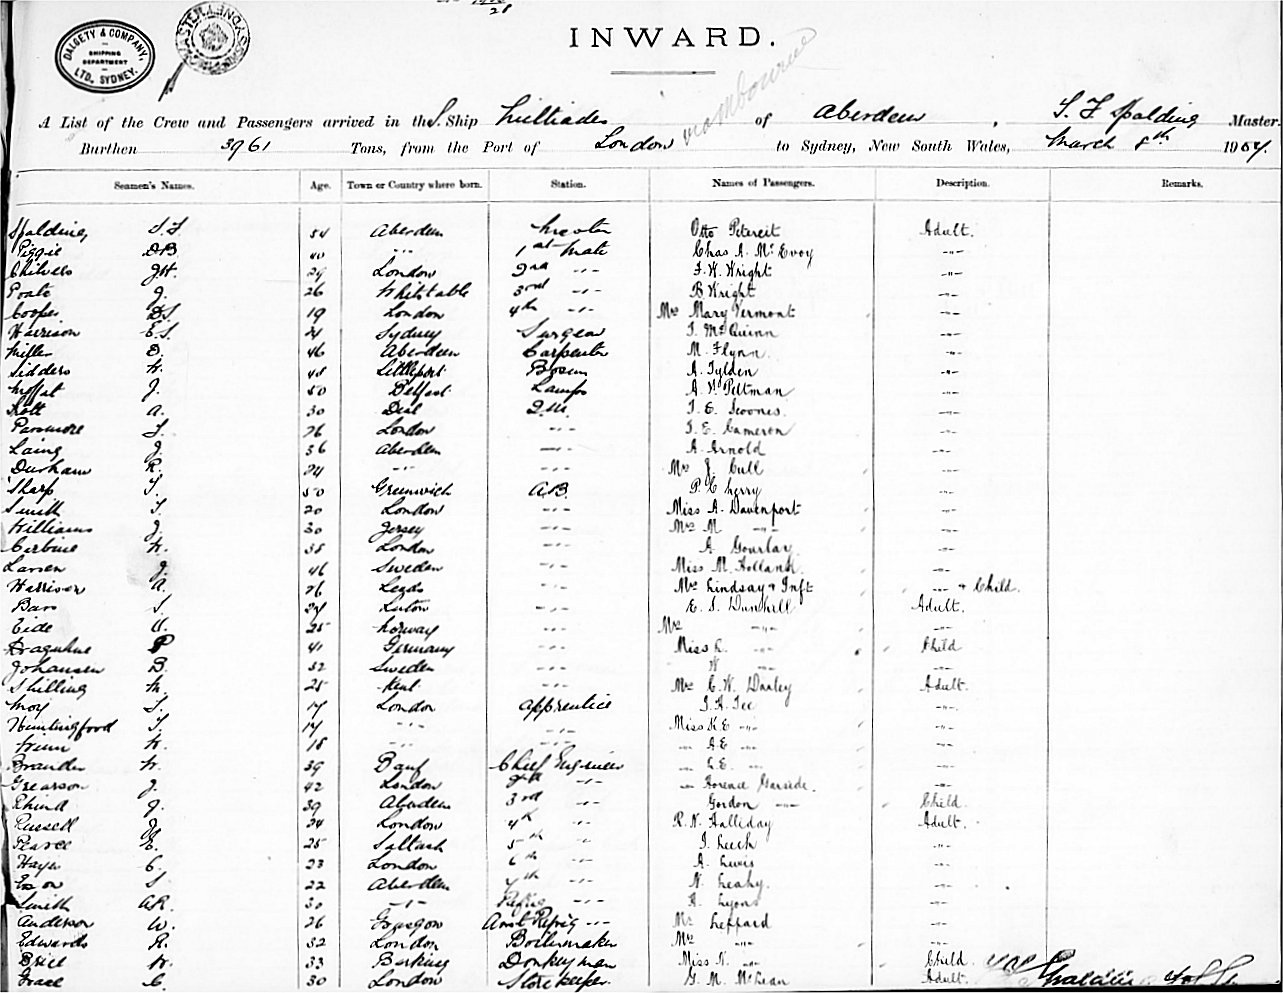 28
DALGETY & COMPANY,
SHIPPING
DEPARTMENT
LTD. SYDNEY.
INWARD.
via Melbourne
A List of the Crew and Passengers arrived in the S. Ship Miltiades of Aberdeen, S. F. Spalding Master.
Burthen 3961 Tons, from the Port of London to Sydney, New South Wales, March 8th 1904.
Seamen's Names. Age. Town or Country where born. Station. Names of Passengers. Description. Remarks.
Spalding S.F 54 Aberdeen Master Otto Petereit Adult.
Piggie D.B. 40 -"- 1st Mate Chas A. McEvoy -"-
Chilvers J.H. 29 London 2nd -"- F. W. Wright -"-
Poate J. 26 Whitstable 3rd -"- B Wright -"-
Cooper D.S. 19 London 4th -"- Mrs Mary Vermont -"-
Harrison E.S. Sydney Surgeon T. McGuinn -"-
Miller D. 46 Aberdeen Carpenter M. Flynn -"-
Sidders W. 48 Littleport Bosun A. Tylden -"-
Moffat J. 50 Belfast Lamps A. V. Peltman -"-
Kott A. 30 Deal Q.M. T. E. Scoones. -"-
Passmore 26 London -"- T. E. Cameron -"-
Laing J. 36 Aberdeen -"- A. Arnold -"-
Durham R. 24 -"- Mrs J. Cull -"-
Sharp T. 50 Greenwich A.B. P. Cherry -"-
Smith T. 20 London -"- Miss A. Davenport -"-
Williams J. 30 Jersey -"- Mrs M -"- -"-
W. 35 London -"- A. Gourlay -"-
Larsen J. 46 Sweden -"- Miss M. Hollank -"-
Harrison A. 26 Leeds -"- Mrs Lindsay & Inft -"- & Child.
S. 24 Luton -"- E. S. Dunhill Adult.
Eide O. 25 Norway -"- Mrs -"- -"-
P 41 Germany -"- Miss L. -"- Child
Johansen B. 32 Sweden -"- W -"- -"-
Shilling M. 25 Kent -"- Mrs C. W. Darley Adult.
Moy S. 17 London Apprentice J. H. Tee -"-
Huntingford T. 17 -"- -"- Miss K.E -"- -"-
W. 18 -"- -"- -"- A.E -"- -"-
Brander W. 39 Banf Chief Engineer -"- L.E. -"- -"-
Grearson J. 42 London 2nd -"- -"- Florence Garside. -"-
Rhind J. 39 Aberdeen 3rd -"- Gordon -"- Child.
Russell J. 24 London 4th -"- R. N. Halliday Adult.
Pearce E. 25 Saltash 5th -"- J. Leech -"-
Hayes C. 23 London 6th -"- A. Lewis -"-
S. 22 Aberdeen 7th -"- N. Leahy. -"-
Smith A.R. 30 -"- Refrig -"- H. Lyons -"-
Anderson W. 26 Glasgow Asst Refrig -"- Mr Leppard -"-
Edwards R. 32 London Boilermaker Mrs -"- -"-
Brill W. 33 Barking Donkeyman Miss N. -"- Child.
Grace C. 30 London Storekeeper G. M. McLean Adult. Spalding